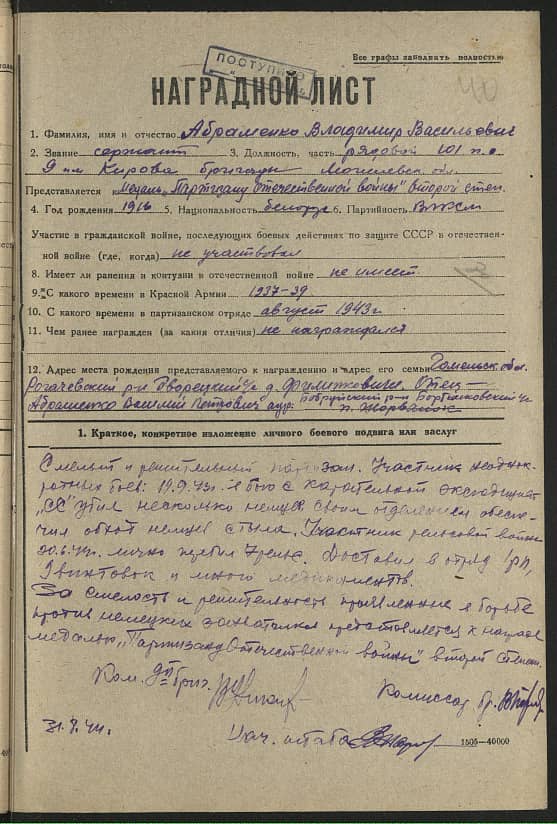 Все графы заполнять полностью
ПОСТУПИЛО
40
НАГРАДНОЙ ЛИСТ
1. Фамилия, имя и отчество Абраменко Владимир Васильевич
2. Звание сержант 3. Должность, часть рядовой 101 п.о
9 им Кирова бригады Могилевск. обл.
Представляется "Медаль "Партизану отечественной войны" второй степ.
4. Год рождения 1916 5. Национальность белорус 6. Партийность ВЛКСМ
Участие в гражданской войне, последующих боевых действиях по защите СССР в отечествен-
ной войне (где, когда) не участвовал
8. Имеет ли ранения и контузии в отечественной войне не имеет
9. С какого времени в Красной Армии 1937-39
10. С какого времени в партизанском отряде август 1943 г
11. Чем ранее награжден (за какия отличия) не награждался
12. Адрес места рождения представляемого к награждению и адрес его семьи Гомельск. обл.
Рогачевский р-н Дворецкий д. Отец —
Абраменко Василий Петрович адр: Бобруйский р-н
п.
1. Краткое, конкретное изложение личного боевого подвига или заслуг
Смелый и решительный партизан. Участник неоднок-
ратных боев: 19.9.43г. в бою с карательной экспедицией
"СС" убил несколько немцев, своим отделением обеспе-
чил обход немцев с тыла. Участник рельсовой войны
20.6.44г. лично подбил рельс. Доставил в отряд
винтовок и много медикаментов.
За смелость и решительность проявленные в борьбе
против немецких захватчиков представляется к награде
медалью "Партизану Отечественной войны" второй степени.
Ком. бриг. Комиссар бр.
31.8.44г. Нач. штаба 1505—40000